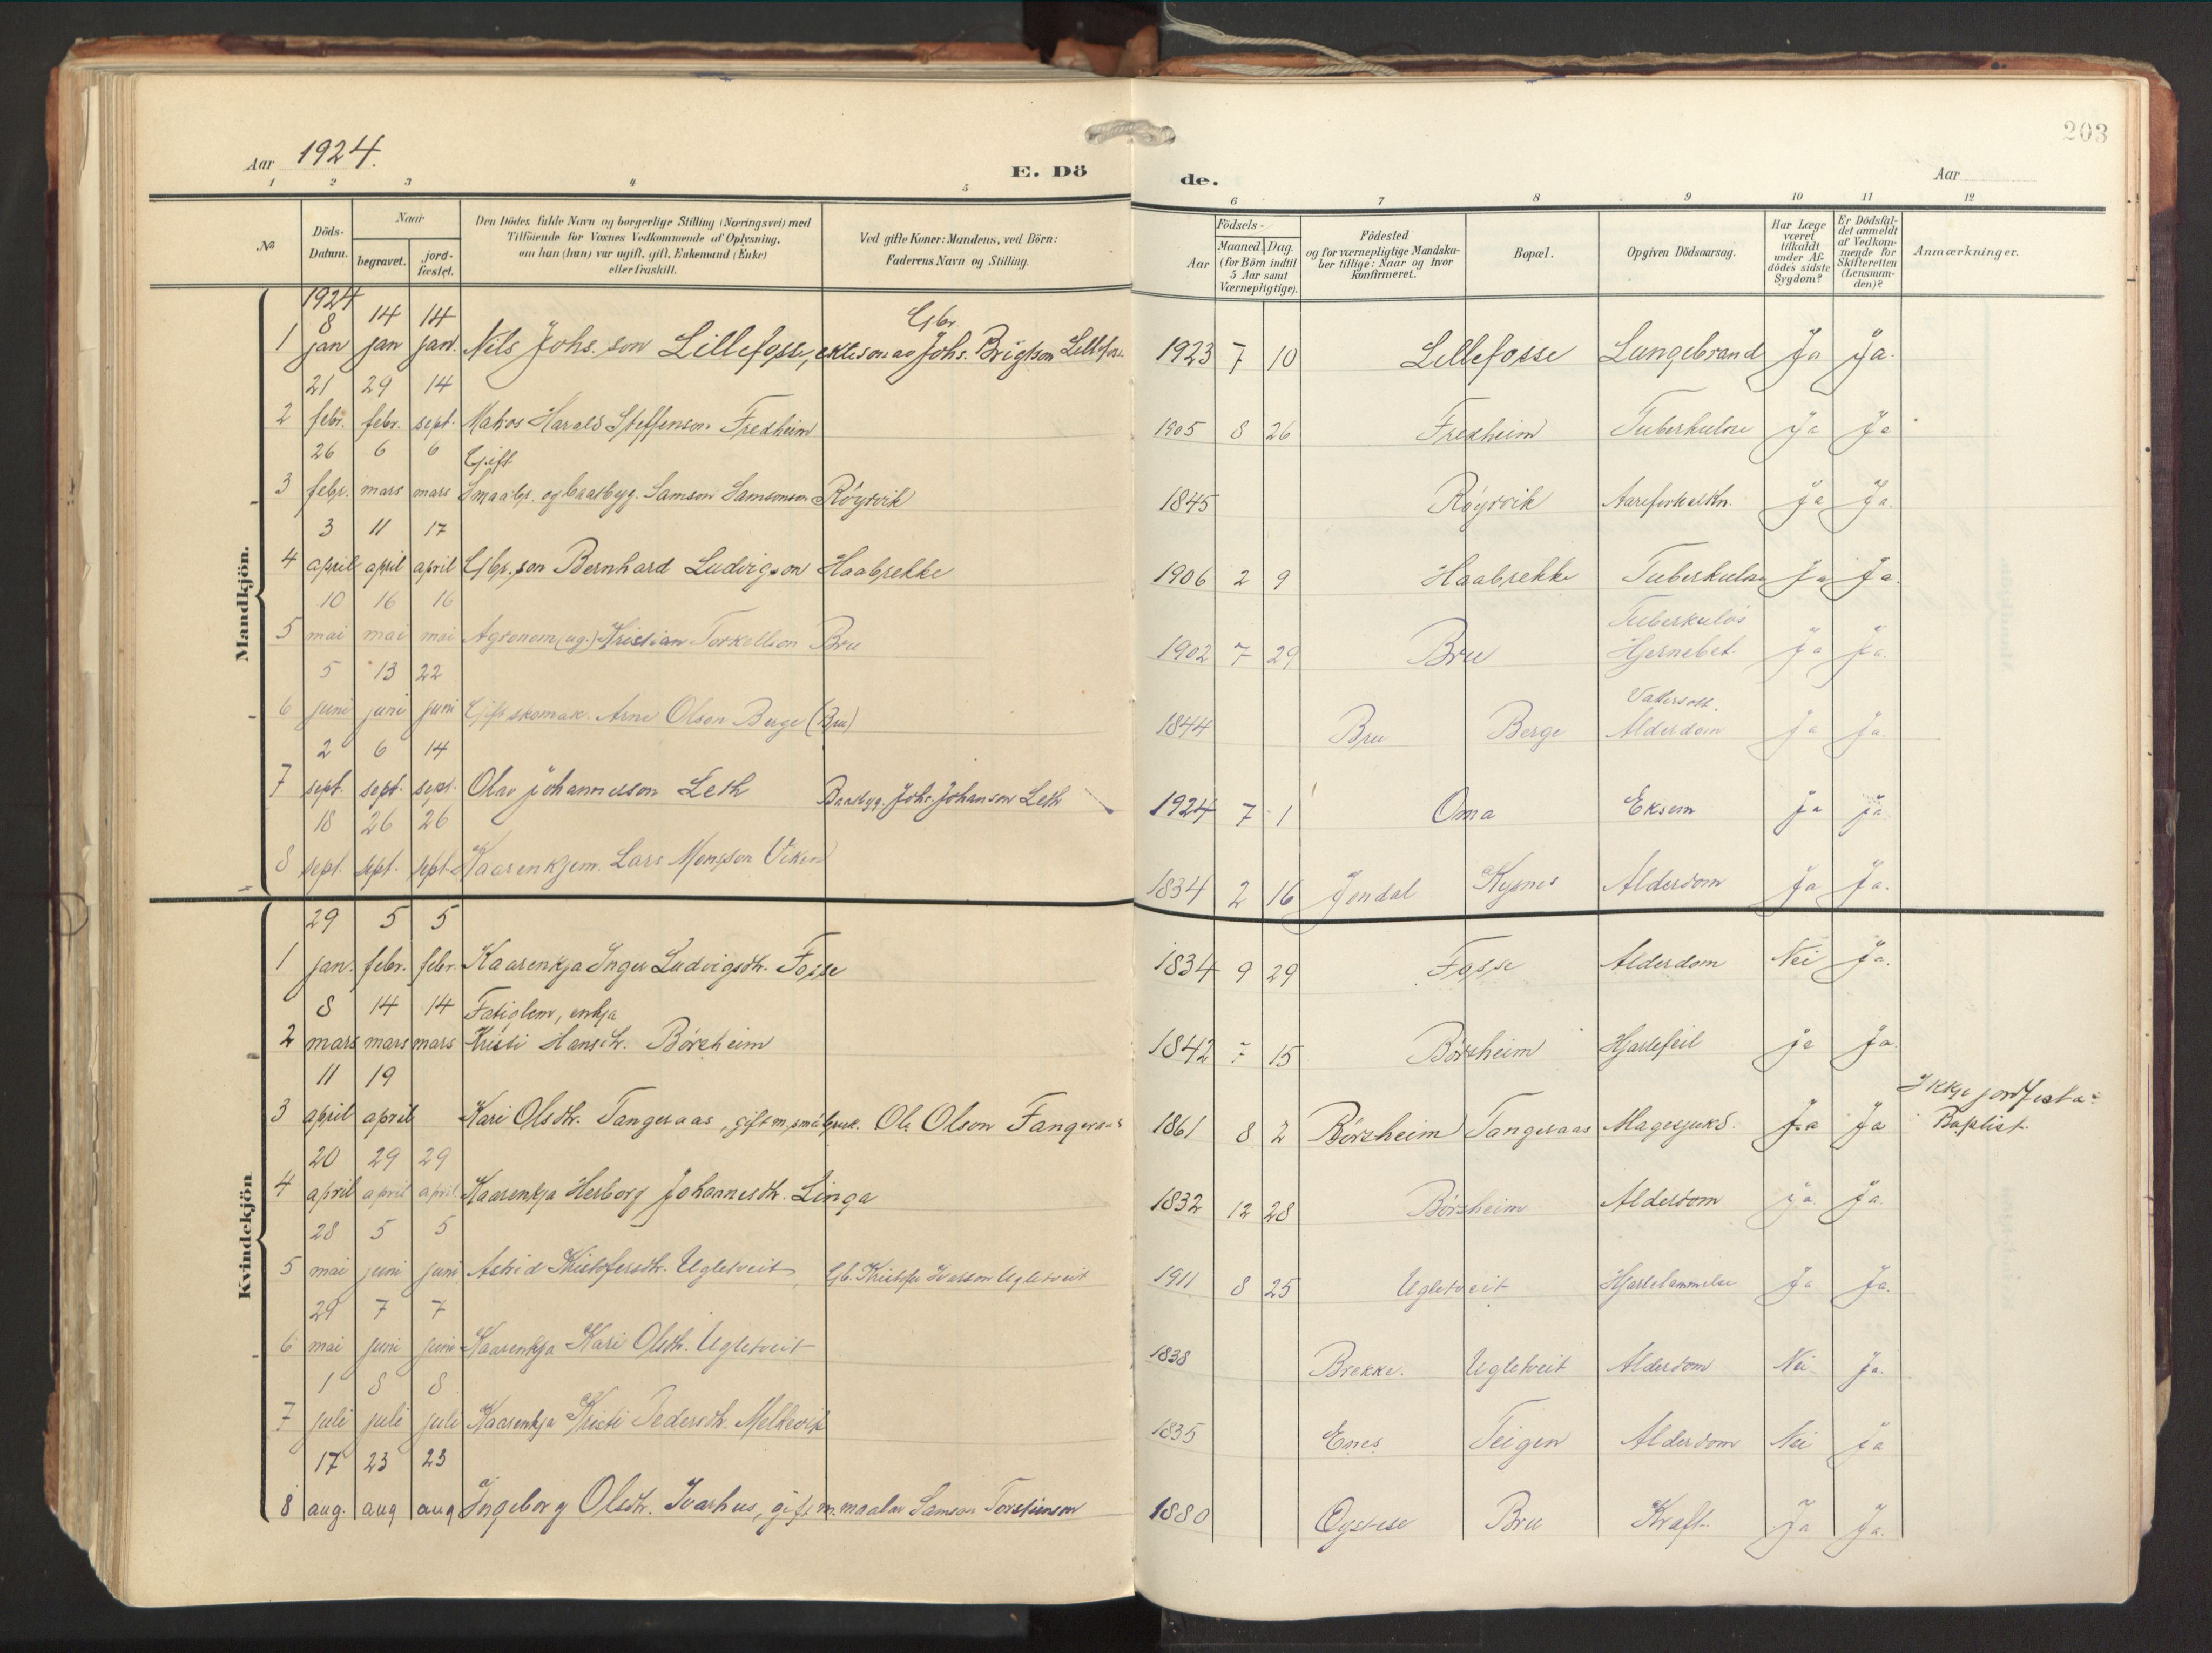 203
Aar 1924.
E. Dö de.
Aar
1 2 3 4 5 6 7 8 9 10 11 12
№
Döds-Datum.
Naar
begravet.
jord-fæstet.
Den Dödes fulde Navn og borgerlige Stilling (Næringsvei) med
Tilföiende for Voxnes Vedkommende af Oplysning,
om han (hun) var ugift, gift, Enkemand (Enke)
eller fraskilt.
Ved gifte Koner: Mandens, ved Börn:
Faderens Navn og Stilling.
Födsels-
Aar
Maaned. Dag.
(for Börn indtil
5 Aar samt
Værnepligtige).
Födested
og for værnepligtige Mandska-
ber tillige: Naar og hvor
konfirmeret.
Bopæl.
Opgiven Dödsaarsag.
Har Læge
været
tilkaldt
under Af-
dödes sidste
Sygdom?
Er Dödsfal-
det anmeldt
af Vedkom-
mende for
Skifteretten
(Lensman-
den)?
Anmærkninger.
Mandkjön.
1924
8 14 14 Gbr.
1 jan jan jan. Nils Johs. son Lillefosse, ekteson av Johs. Brigtson Lillefosse 1923 7 10 Lillefosse Lungebrand Ja Ja.
21 29 14
2 febr. febr. sept. Matros Harald Steffenson Fredheim 1905 8 26 Fredheim Tuberkulose Ja Ja
26 6 6 Gift
3 febr. mars mars Smaabr. og baatbyg. Samson Samsonson Röyrvik 1845 Röyrvik Aareforkalkn. Ja Ja.
3 11 17
4 april april april Gbr. son Bernhard Ludvigson Haabrekke 1906 2 9 Haabrekke Tuberkulose Ja Ja.
10 16 16 Tuberkulös
5 mai mai mai Agronom (ug.) Kristian Torkellson Bru 1902 7 29 Bru Hjernebet Ja Ja.
5 13 22 Vattersott.
6 juni juni juni Gift skomak. Arne Olson Berge (Bru) 1844 Bru Berge Alderdom Ja Ja.
2 6 14
7 sept. sept. sept. Olav Johannesson Leth Baatbyg. Johs. Johanson Leth 1924 7 1 Oma Eksem Ja Ja
18 26 26
8 sept. sept. sept. Kaarenkjem. Lars Monsson Viken 1834 2 16 Jondal Kysnes Alderdom Ja Ja.
Kvindekjön
29 5 5
1 jan. febr. febr. Kaarenkja Inger Ludvigsdtr. Fosse 1834 9 29 Fosse Alderdom Nei Ja.
8 14 14 Fatiglem, enkja
2 mars mars mars Kristi Hansdtr. Börsheim 1842 7 15 Börsheim Hjartefeil Ja Ja.
11 19 Ikkje jordfesta:
3 april april Kari Olsdtr. Tangeraas, gift m. småbruk. Ola Olson Tangeraas 1861 8 2 Börsheim Tangeraas Magesjukd. Ja Ja Baptist.
20 29 29
4 april april april Kaarenkja Herborg Johannesdtr. Linga 1832 12 28 Börsheim Alderdom Ja Ja.
28 5 5
5 mai juni juni Astrid Kristofersdtr. Ugletveit, Gb. Kristofer Ivarson Ugletveit 1911 8 25 Ugletveit Hjartelammelse Ja Ja.
29 7 7
6 mai juni juni Kaarenkja Kari Olsdtr. Ugletveit 1838 Brekke. Ugletveit Alderdom Nei Ja.
1 8 8
7 juli juli juli Kaarenkja Kristi Pedersdtr. Melkevik 1835 Enes Teigen Alderdom Nei Ja
17 23 23
8 aug. aug aug Ingeborg Olsdtr. Ivarhus, gift m. maalar Samson Torsteinson 1880 Oystese Bru Kraft. Ja Ja.